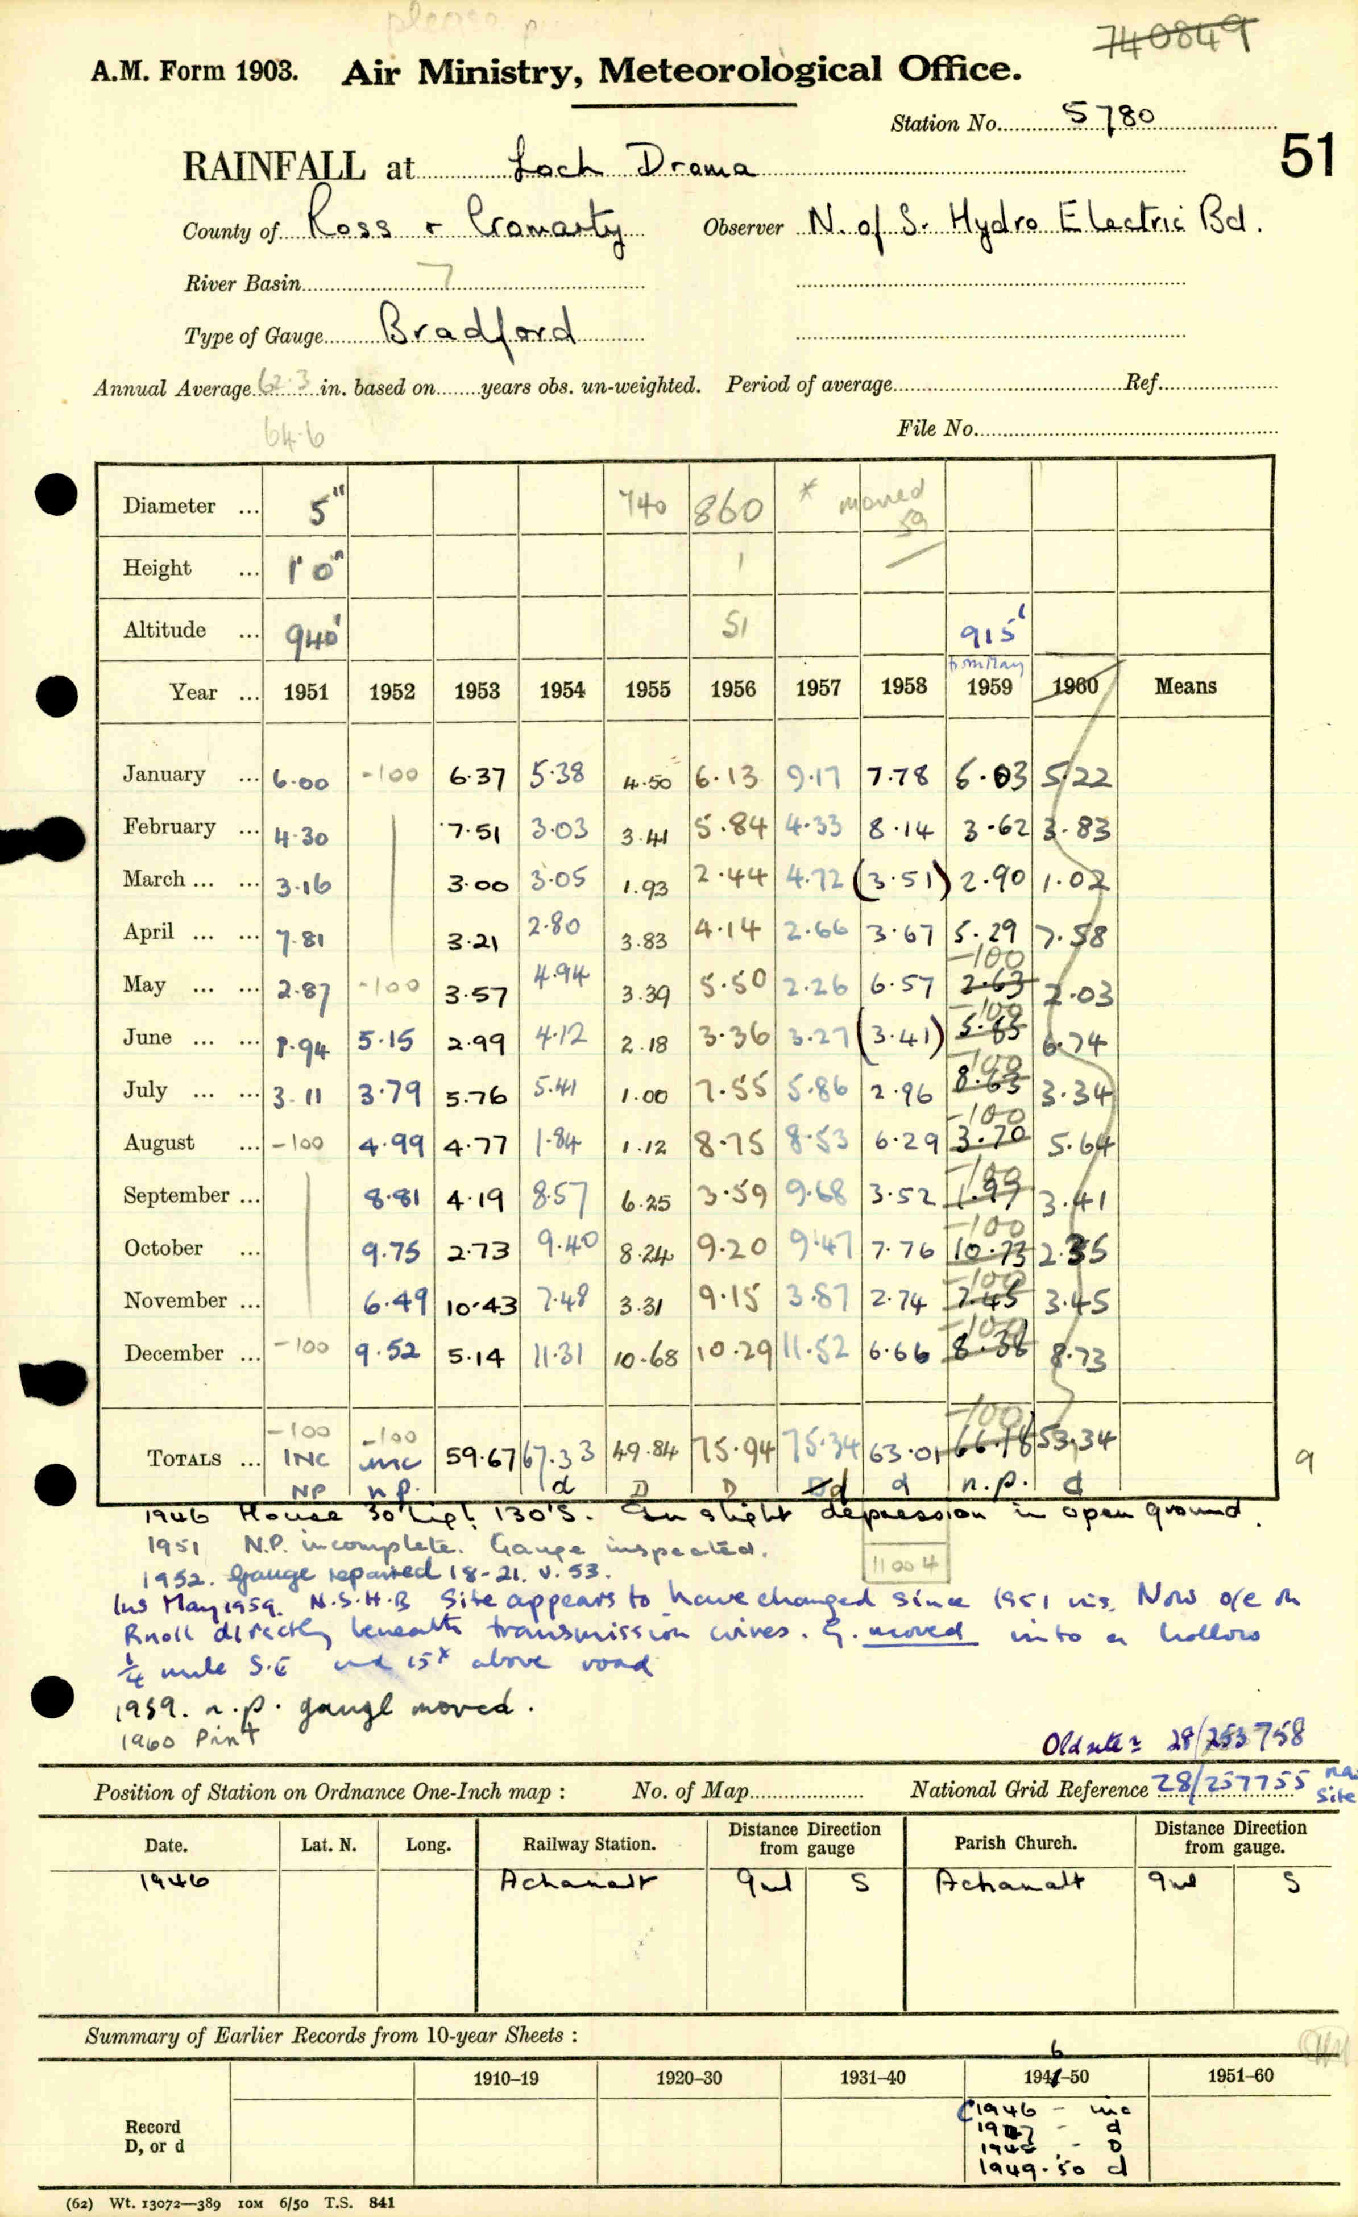 please p
740849
A.M. Form 1903. Air Ministry, Meteorological Office.
Station No. 5780
51
RAINFALL at Loch Droma
County of Ross & Cromarty Observer N. of S. Hydro Electric Bd.
River Basin 7
Type of Gauge Bradford
Annual Average 62.3 in. based on years obs. un-weighted. Period of average Ref.
64.6
File No.
Diameter ... 5" 740 860 * moved 59
Height ... 1' 0" 1
Altitude ... 940' 51 915'
from May
Year ... 1951 1952 1953 1954 1955 1956 1957 1958 1959 1960 Means
January ... 6.00 -100 6.37 5.38 4.50 6.13 9.17 7.78 6.03 5.22
February ... 4.30 7.51 3.03 3.41 5.84 4.33 8.14 3.62 3.83
March ... ... 3.16 3.00 3.05 1.93 2.44 4.72 (3.51) 2.90 1.02
April ... ... 7.81 3.21 2.80 3.83 4.14 2.66 3.67 5.29 7.58
May ... ... 2.87 -100 3.57 4.94 3.39 5.50 2.26 6.57 -100 2.63 2.03
June ... ... 8.94 5.15 2.99 4.12 2.18 3.36 3.27 (3.41) -100 5.85 6.74
July ... ... 3.11 3.79 5.76 5.41 1.00 7.55 5.86 2.96 -100 8.63 3.34
August ... -100 4.99 4.77 1.84 1.12 8.75 8.53 6.29 -100 3.70 5.64
September ... 8.81 4.19 8.57 6.25 3.59 9.68 3.52 -100 1.97 3.41
October ... 9.75 2.73 9.40 8.24 9.20 9.47 7.76 -100 10.73 2.35
November ... 6.49 10.43 7.48 3.31 9.15 3.87 2.74 -100 7.45 3.45
December ... -100 9.52 5.14 11.31 10.68 10.29 11.52 6.66 -100 8.38 8.73
-100 -100 -100
TOTALS ... INC inc 59.67 67.33 49.84 75.94 75.34 63.01 66.18 53.34
NP n.p. d D D d d n.p. d
9
1946 House 30' high 130'S. In slight depression in open ground.
1951 N.P. incomplete. Gauge inspected.
11004
1952. Gauge repaired 18-21.V.53.
Ins May 1959. N.S.H.B Site appears to have changed since 1951 vis. Now o/e on
knoll directly beneath transmission wires. G. moved into a hollow
¼ mile S.E and 15x above road
1959. n.p. gauge moved.
1960 Pint
Old site = 28/253758
Position of Station on Ordnance One-Inch map : No. of Map National Grid Reference 28/257755
Site
Date. Lat. N. Long. Railway Station. Distance Direction from gauge Parish Church. Distance Direction from gauge.
1946 Achanalt 9ml S Achanalt 9ml S
Summary of Earlier Records from 10-year Sheets :
6
1910–19 1920–30 1931–40 1941–50 1951–60
Record
D, or d
1946 - inc
1947 - d
1948 - D
1949-50 d
(62) Wt. 13072—389 10M 6/50 T.S. 841